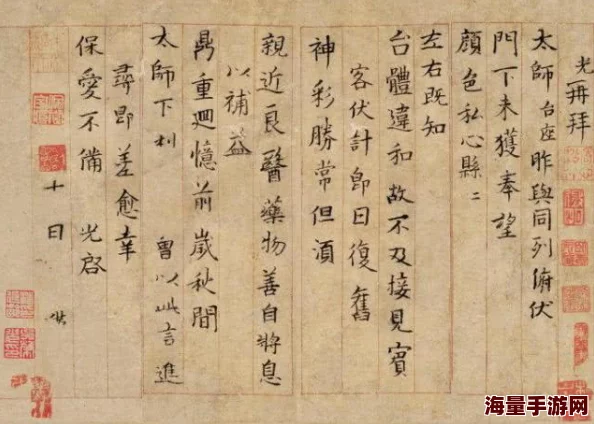 光再拜
太師台座昨與同列俯伏
門下未獲奉望
顏色私心縣〻
左右既知
台體違和故不及接見賓
客伏計即日復舊
神彩勝常但須
親近良醫藥物善自將息
以補益
鼎重迴憶前歲秋間
太師下利 曾以此言進
尋即差愈幸
保愛不備 光啓
十日
海量手游网